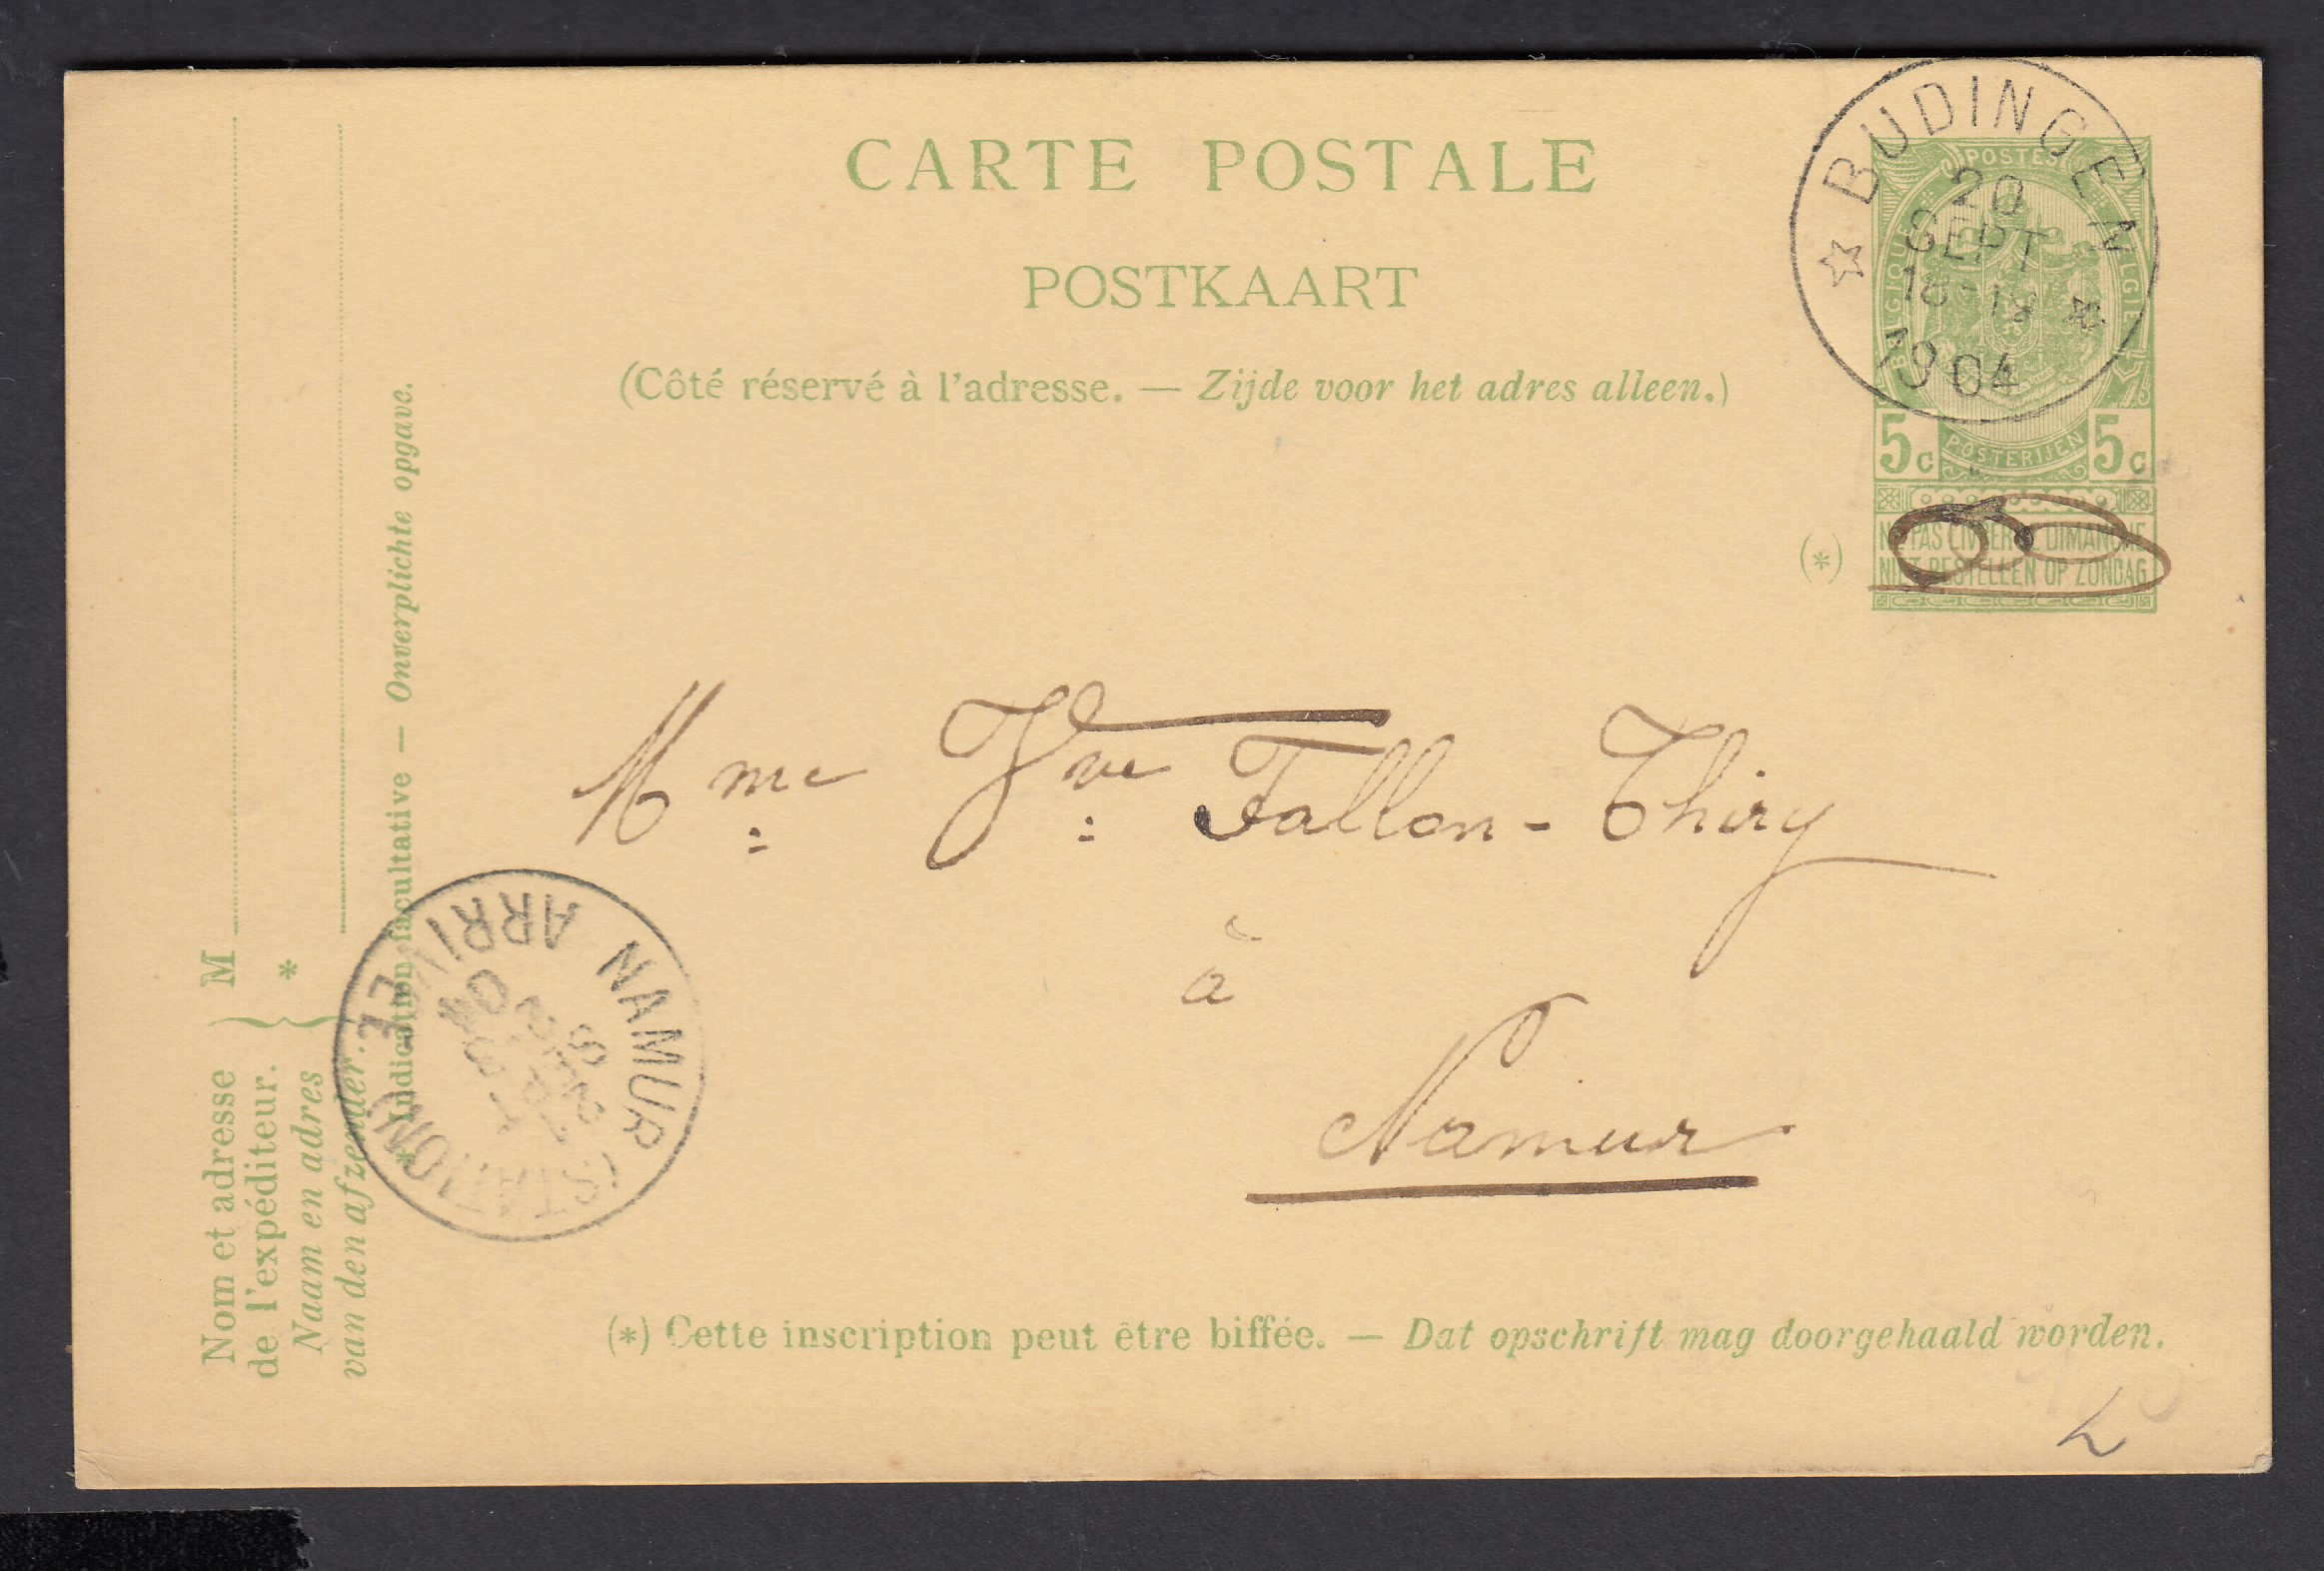 CARTE POSTALE
POSTKAART
(Côté réservé à l'adresse. — Zijde voor het adres alleen.)
BUDINGEN
20
SEPT
18-19
1904
POSTES
BELGIQUE
BELGIË
5c POSTERIJEN 5c
NE PAS LIVRER LE DIMANCHE
NIET BESTELLEN OP ZONDAG
(*)
Mme Vve Fallon-Thiry
à
Namur
NAMUR (STATION)
ARRIVEE
21
SEPT
04
M
*
Nom et adresse
de l'expéditeur.
Naam en adres
van den afzender.
* Indication facultative — Onverplichte opgave.
(*) Cette inscription peut être biffée. — Dat opschrift mag doorgehaald worden.